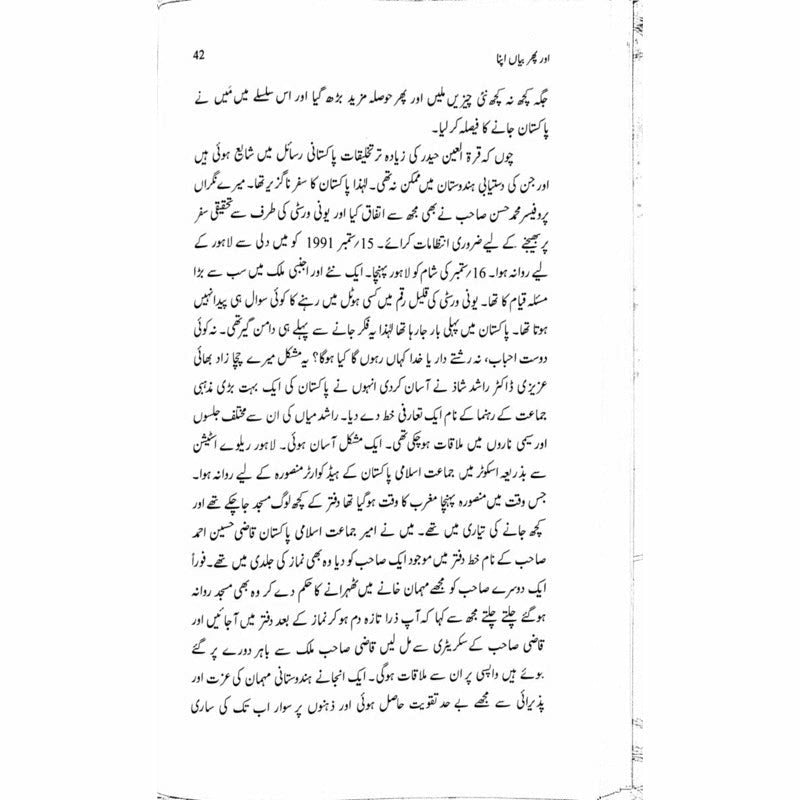 اور پھر بیاں اپنا
42
جگہ کچھ نہ کچھ نئی چیزیں ملیں اور پھر حوصلہ مزید بڑھ گیا اور اس سلسلے میں مَیں نے
پاکستان جانے کا فیصلہ کر لیا۔
چوں کہ قرۃ العین حیدر کی زیادہ تر تخلیقات پاکستانی رسائل میں شایع ہوئی ہیں
اور جن کی دستیابی ہندوستان میں ممکن نہ تھی۔ لہٰذا پاکستان کا سفر ناگزیر تھا۔ میرے نگراں
پروفیسر محمد حسن صاحب نے بھی مجھ سے اتفاق کیا اور یونی ورسٹی کی طرف سے تحقیقی سفر
پر بھیجنے کے لیے ضروری انتظامات کرائے۔ 15؍ستمبر 1991 کو میں دلی سے لاہور کے
لیے روانہ ہوا۔ 16؍ستمبر کی شام کو لاہور پہنچا۔ ایک نئے اور اجنبی ملک میں سب سے بڑا
مسئلہ قیام کا تھا۔ یونی ورسٹی کی قلیل رقم میں کسی ہوٹل میں رہنے کا کوئی سوال ہی پیدا نہیں
ہوتا تھا۔ پاکستان میں پہلی بار جا رہا تھا لہٰذا یہ فکر جانے سے پہلے ہی دامن گیر تھی۔ نہ کوئی
دوست احباب، نہ رشتے دار یا خدا کہاں رہوں گا کیا ہوگا؟ یہ مشکل میرے چچا زاد بھائی
عزیزی ڈاکٹر راشد شاذ نے آسان کردی انہوں نے پاکستان کی ایک بہت بڑی مذہبی
جماعت کے رہنما کے نام ایک تعارفی خط دے دیا۔ راشد میاں کی ان سے مختلف جلسوں
اور سیمی ناروں میں ملاقات ہوچکی تھی۔ ایک مشکل آسان ہوئی۔ لاہور ریلوے اسٹیشن
سے بذریعہ اسکوٹر میں جماعت اسلامی پاکستان کے ہیڈ کوارٹر منصورہ کے لیے روانہ ہوا۔
جس وقت میں منصورہ پہنچا مغرب کا وقت ہوگیا تھا دفتر کے کچھ لوگ مسجد جاچکے تھے اور
کچھ جانے کی تیاری میں تھے۔ میں نے امیر جماعت اسلامی پاکستان قاضی حسین احمد
صاحب کے نام خط دفتر میں موجود ایک صاحب کو دیا وہ بھی نماز کی جلدی میں تھے۔ فوراً
ایک دوسرے صاحب کو مجھے مہمان خانے میں ٹھہرانے کا حکم دے کر وہ بھی مسجد روانہ
ہوگئے چلتے چلتے مجھ سے کہا کہ آپ ذرا تازہ دم ہوکر نماز کے بعد دفتر میں آجائیں اور
قاضی صاحب کے سکریٹری سے مل لیں قاضی صاحب ملک سے باہر دورے پر گئے
ہوئے ہیں واپسی پر ان سے ملاقات ہوگی۔ ایک انجانے ہندوستانی مہمان کی عزت اور
پذیرائی سے مجھے بے حد تقویت حاصل ہوئی اور ذہنوں پر سوار اب تک کی ساری